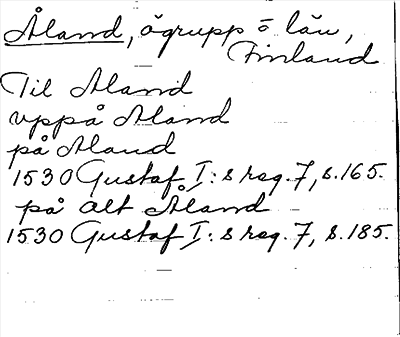 Åland, ögrupp o län,
Finland
Til Aland
vppå Aland
på Aland
1530 Gustaf I:s reg. 7, s. 165.
på alt Åland
1530 Gustaf I:s reg. 7, s. 185.